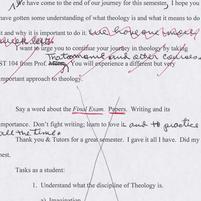 We have come to the end of our journey for this semester, I hope you
have gotten some understanding of what theology is and what it means to do
it and why it is important to do it. we hope our
I want to urge you to continue your journey in theology by taking
Trotamoni and other courses
ST 104 from Prof. You will experience a different but very
important approach to theology.
Say a word about the Final Exam. Papers. Writing and its
importance. Don't fight writing; learn to love it. and to practice
all the time.
Thank you & Tutors for a great semester. I gave it all I had. Did my
best.
Tasks as a student:
1. Understand what the discipline of Theology is.
a) Imagination